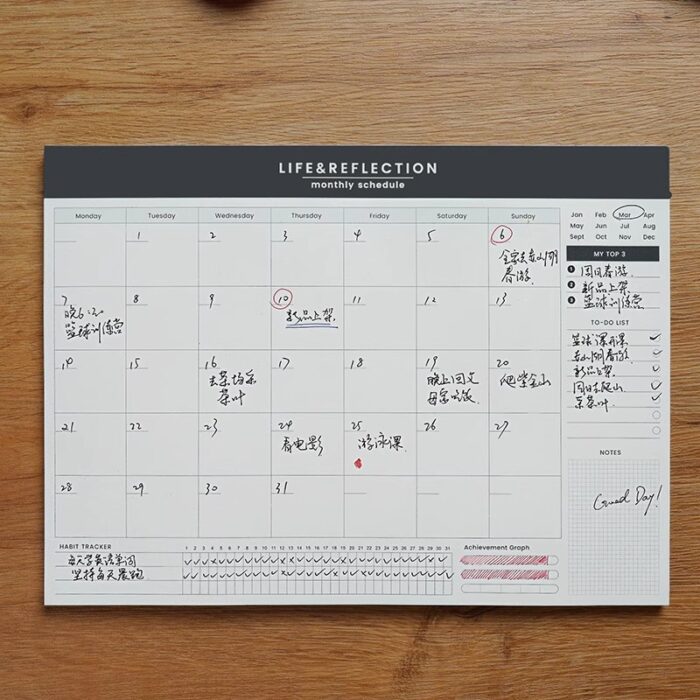 LIFE&REFLECTION
monthly schedule
Monday Tuesday Wednesday Thursday Friday Saturday Sunday
1 2 3 4 5 6
全家去
春游
7 8 9 10 11 12 13
晚6:00
篮球训练营
新品上架
14 15 16 17 18 19 20
去茶场采
茶叶
晚上回父
母家吃饭
爬紫金山
21 22 23 24 25 26 27
看电影
游泳课
28 29 30 31
Jan Feb Mar Apr
May Jun Jul Aug
Sept Oct Nov Dec
MY TOP 3
1 周日春游
2 新品上架
3 篮球训练营
TO-DO LIST
篮球课
春游
新品上架
周日去爬山
采茶叶
NOTES
Good Day!
HABIT TRACKER
1 2 3 4 5 6 7 8 9 10 11 12 13 14 15 16 17 18 19 20 21 22 23 24 25 26 27 28 29 30 31
每天学英语单词
坚持每天晨跑
Achievement Graph